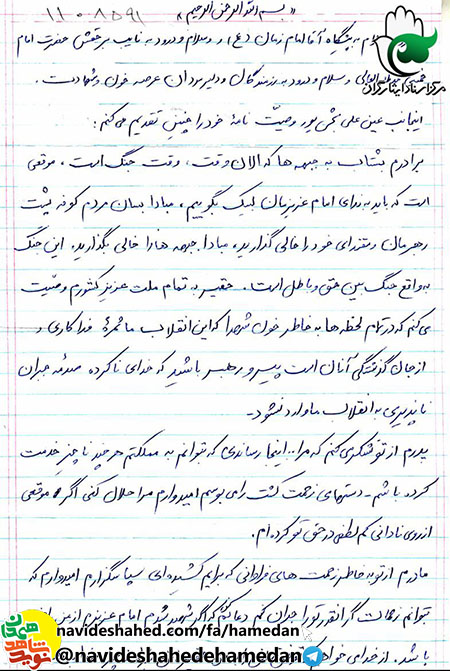 بسم الله الرحمن الرحیم
11085591
سلام به پیشگاه آقا امام زمان (عج) و سلام و درود به نایب برحقش حضرت امام
خمینی و سلام و درود به رزمندگان و دلیرمردان عرصه خون و شهادت.
اینجانب عین علی نجمی پور وصیت نامه خود را چنین تقدیم می کنم:
برادرم بشتاب به جبهه ها که الان وقت، وقت جنگ است، موقعی
است که باید به ندای امام عزیزمان لبیک بگوییم، مبادا بسان مردم کوفه پشت
رهبرمان و مقتدای خود را خالی گذارید، مبادا جبهه ها را خالی بگذارید. این جنگ
به واقع جنگ بین حق و باطل است. حقیر به تمام ملت عزیز کشورم وصیت
می کنم که در تمام لحظه ها به خاطر خون شهدا که این انقلاب ما ثمره فداکاری و
از جان گذشتگی آنان است پیرو رهبر باشید که خدای ناکرده صدمه جبران
ناپذیری به انقلاب ما وارد نشود.
پدرم از تو تشکر می کنم که مرا به اینجا رساندی که توانم به مملکتم هر چند ناچیز خدمت
کرده باشم. دستهای زحمت کشت را می بوسم امیدوارم مرا حلال کنی اگر موقعی
از روی نادانی کم لطفی در حق تو کرده ام.
مادرم از تو به خاطر زحمت های فراوانی که برایم کشیده ای سپاسگزارم امیدوارم که
بتوانم زحمات گرانقدر تو را جبران کنم دعا کنم که اگر شهید شدم امام عزیزم از من راضی
باشد. از خدای خواهم
مرکز اسناد ایثارگران
نوید شاهد همدان
navideshahed.com/fa/hamedan
@navideshahedehamedan